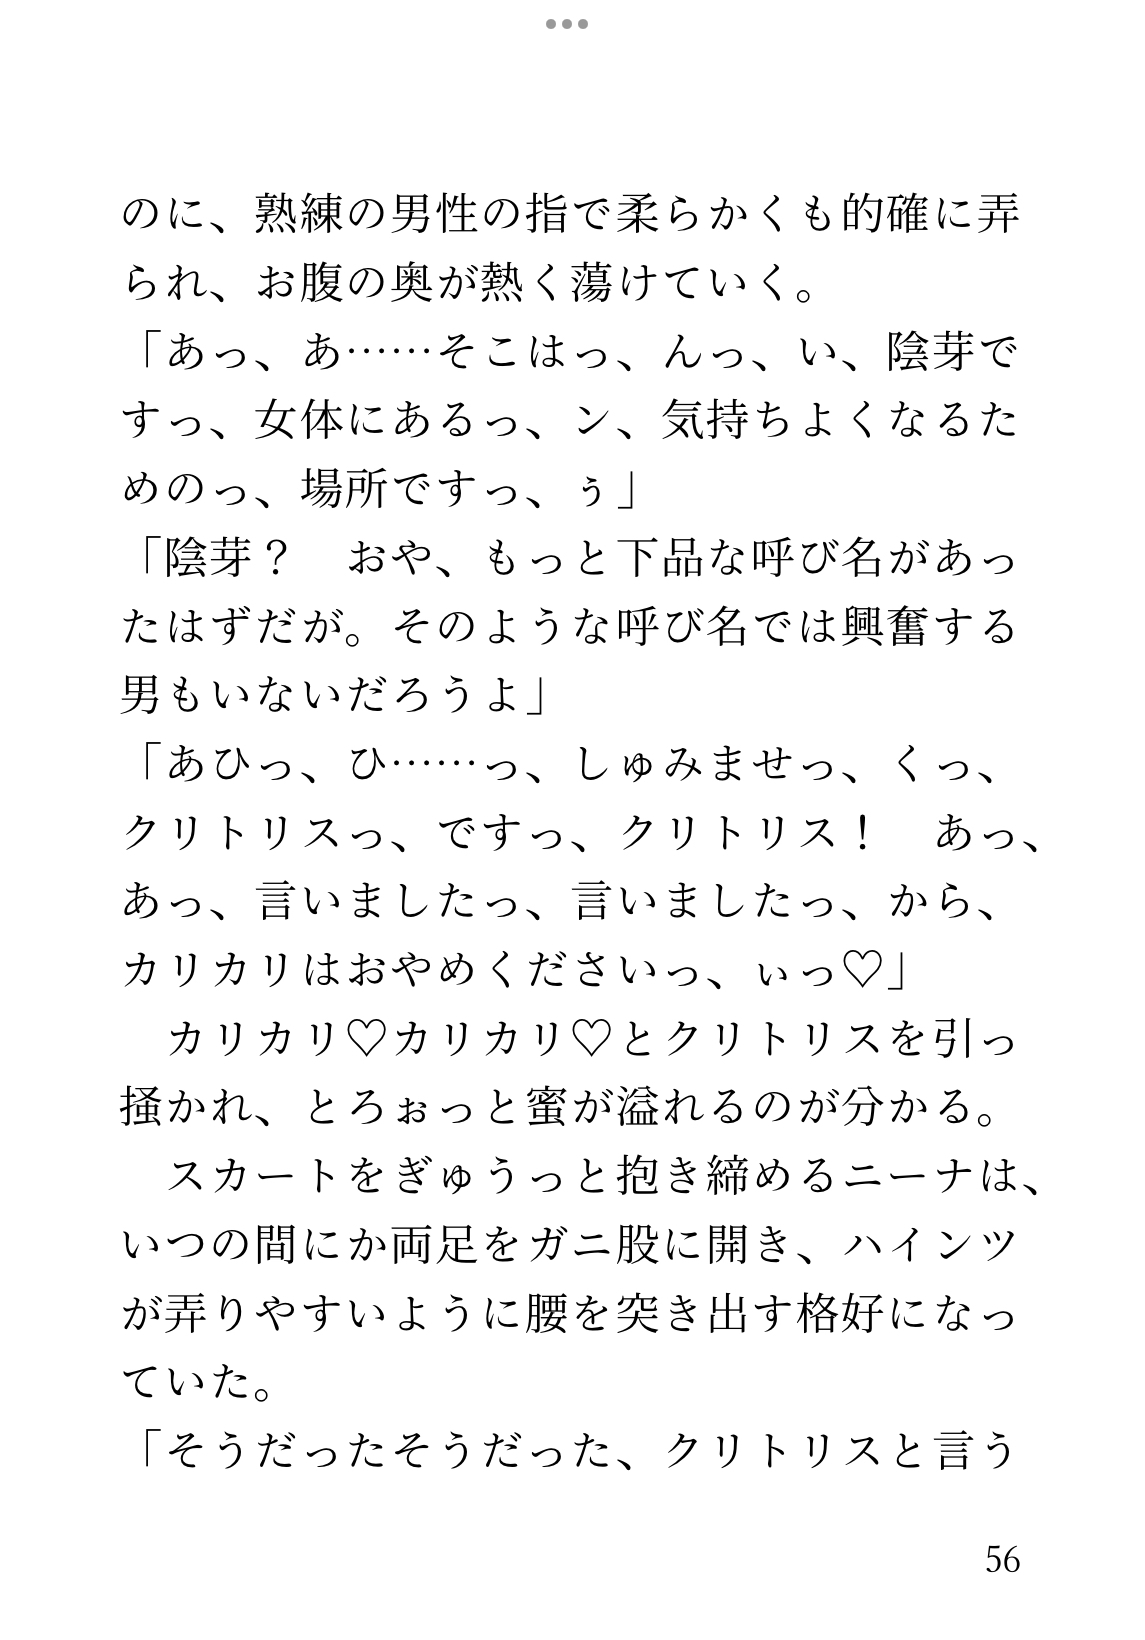 のに、熟練の男性の指で柔らかくも的確に弄
られ、お腹の奥が熱く蕩けていく。
「あっ、あ……そこはっ、んっ、い、陰芽で
すっ、女体にあるっ、ン、気持ちよくなるた
めのっ、場所ですっ、ぅ」
「陰芽？　おや、もっと下品な呼び名があっ
たはずだが。そのような呼び名では興奮する
男もいないだろうよ」
「あひっ、ひ……っ、しゅみませっ、くっ、
クリトリスっ、ですっ、クリトリス！　あっ、
あっ、言いましたっ、言いましたっ、から、
カリカリはおやめくださいっ、ぃっ♡」
　カリカリ♡カリカリ♡とクリトリスを引っ
掻かれ、とろぉっと蜜が溢れるのが分かる。
　スカートをぎゅうっと抱き締めるニーナは、
いつの間にか両足をガニ股に開き、ハインツ
が弄りやすいように腰を突き出す格好になっ
ていた。
「そうだったそうだった、クリトリスと言う
56